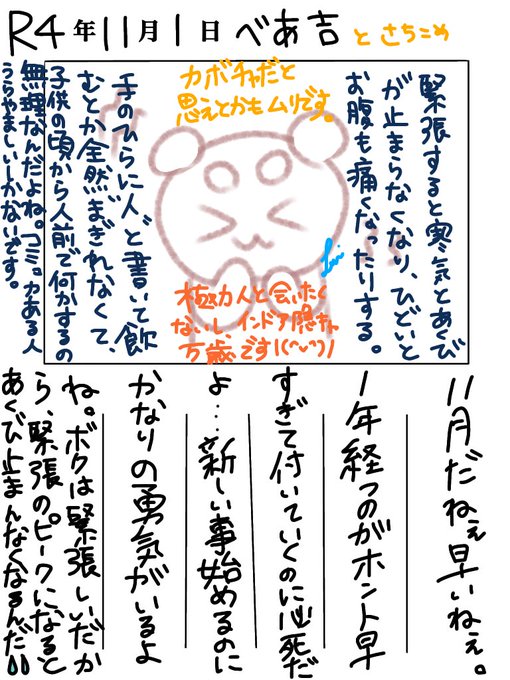 R4年11月1日 べあ吉 と さちこめ
緊張すると寒気とあくび
が止まらなくなり、ひどいと
お腹も痛くなったりする。
カボチャだと
思えとかもムリです。
手のひらに"人"と書いて飲
むとか全然まぎれなくて、
子供の頃から人前で何かするの
無理なんだよね。コミュ力ある人
うらやましいしかないです。
極力人と会いたく
ないし、インドア隠キャ
万歳です!
11月だねぇ早いねぇ。
1年経つのがホント早
すぎて付いていくのに必死だ
よ…新しい事始めるのに
かなりの勇気がいるよ
ね。ボクは緊張しいだか
ら、緊張のピークになると
あくび止まんなくなるんだ